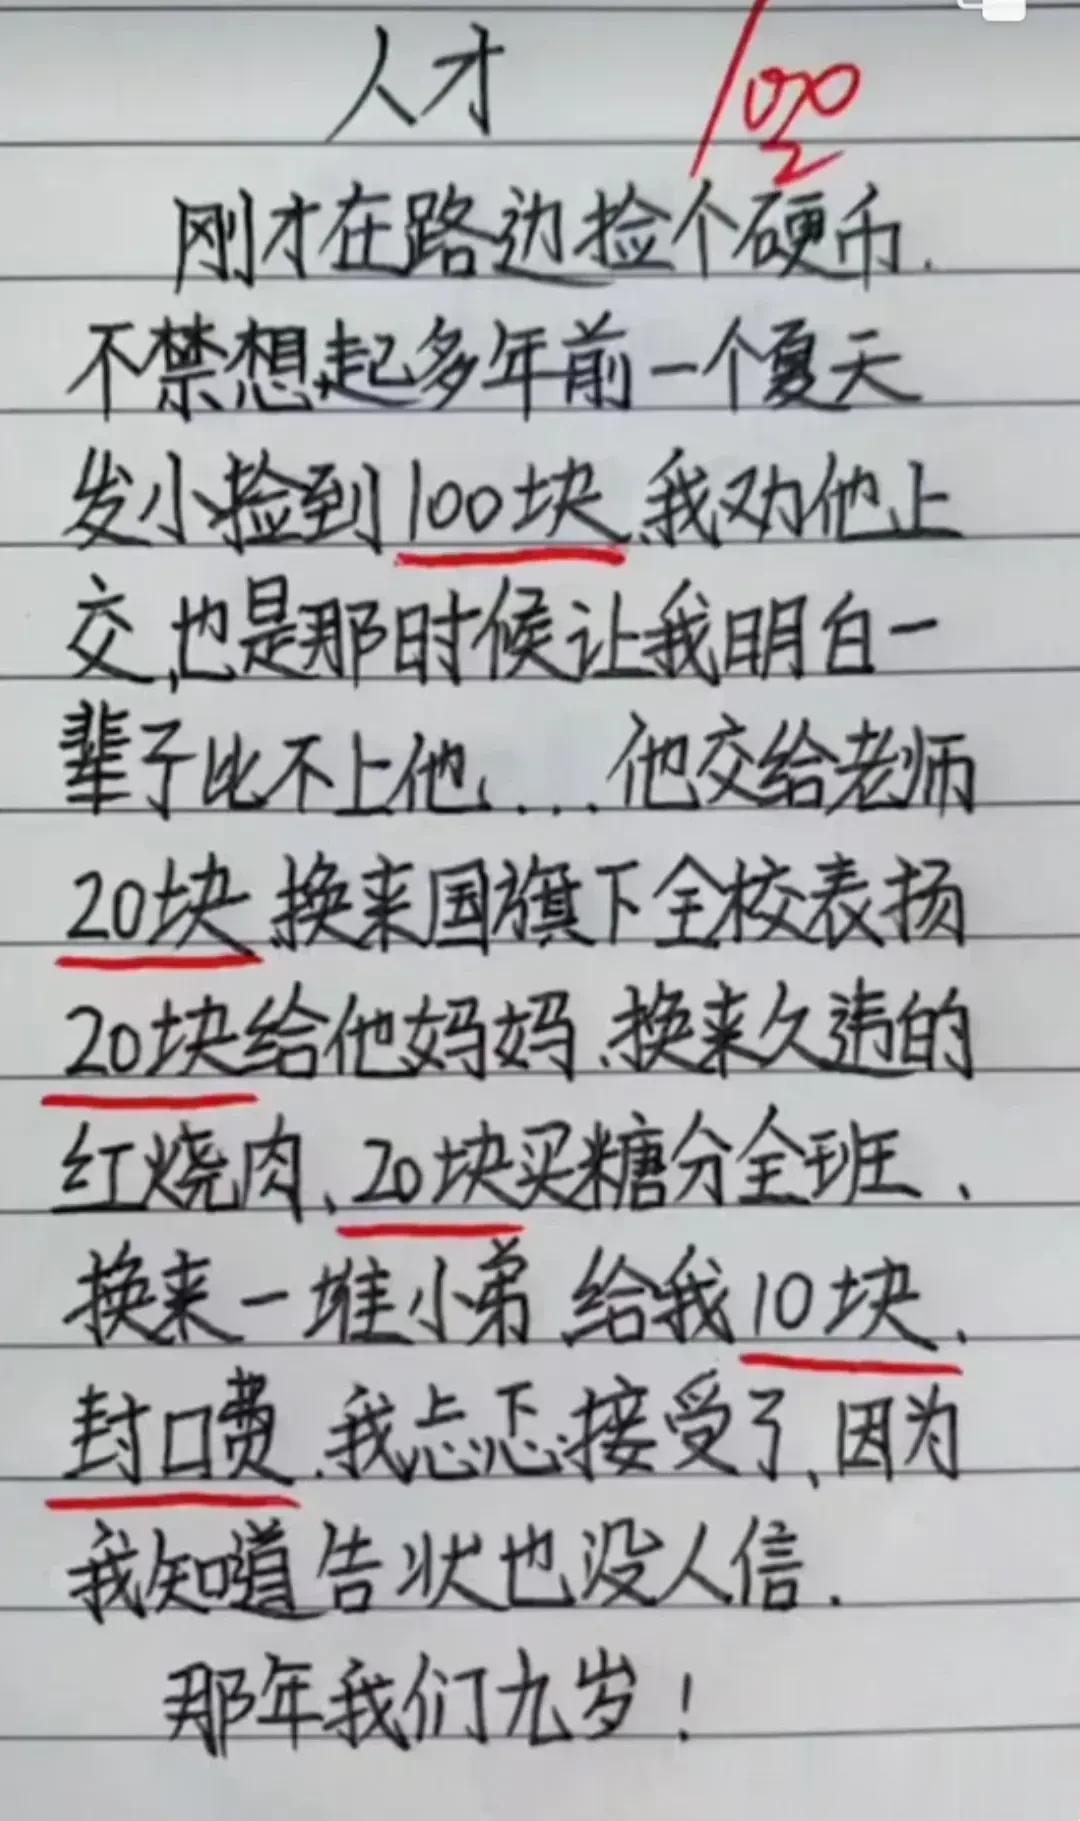 人才 100
刚才在路边捡个硬币.
不禁想起多年前一个夏天
发小捡到100块、我劝他上
交,也是那时候让我明白一
辈子比不上他....他交给老师
20块、换来国旗下全校表扬
20块给他妈妈、换来久违的
红烧肉、20块买糖分全班、
换来一堆小弟、给我10块、
封口费、我忐忑接受了、因为
我知道告状也没人信.
那年我们九岁!